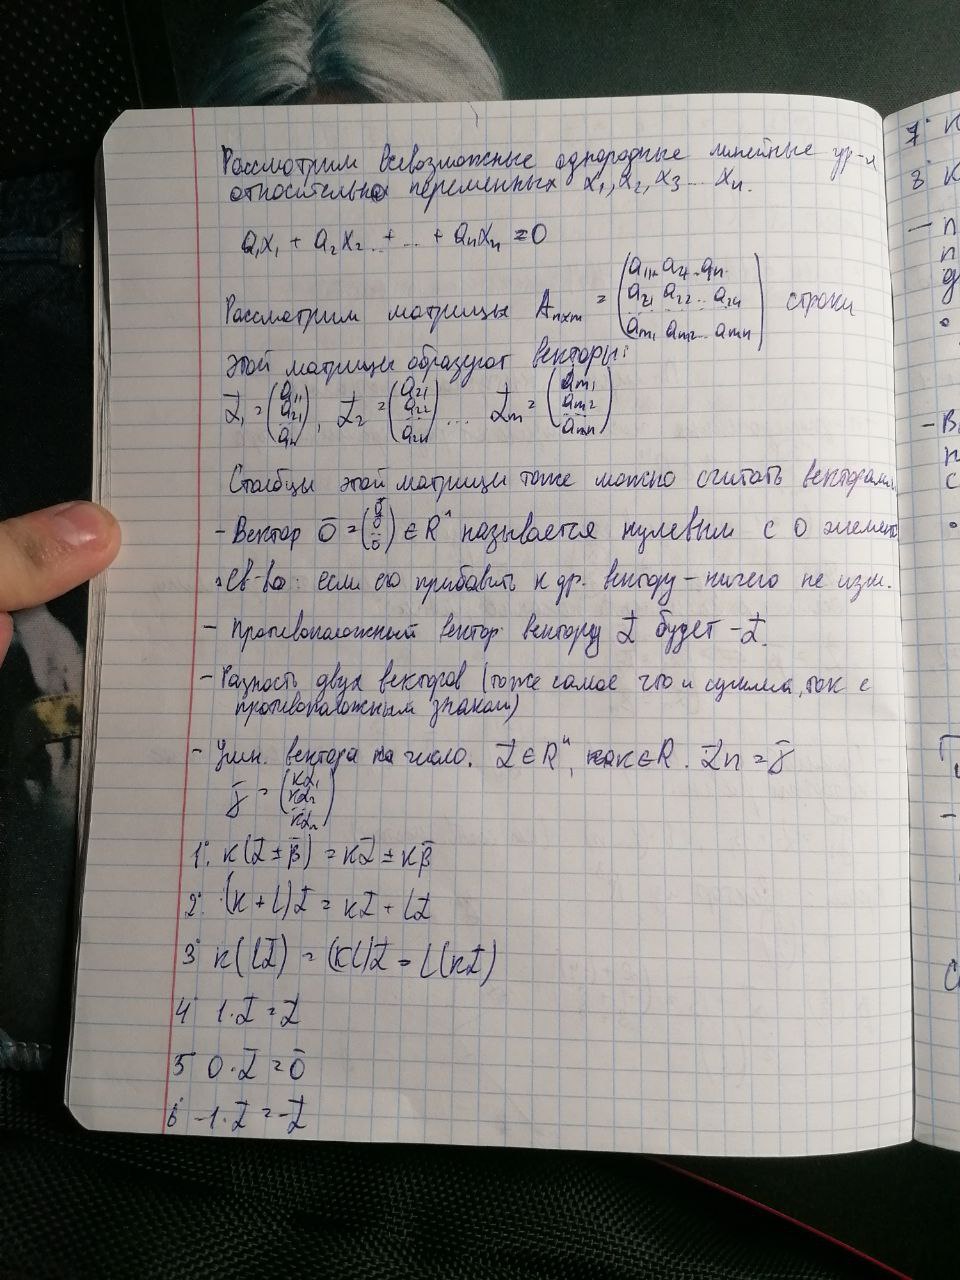 Рассмотрим всевозможные однородные линейные ур-я
относительно переменных x₁, x₂, x₃ ... xₙ.
a₁x₁ + a₂x₂ + ... + aₙxₙ = 0
Рассмотрим матрицы Aₙₓₘ = (a₁₁ a₂ .. aₙ / a₂₁ a₂₂ ... a₂ₙ / aₘ₁ aₘ₂ ... aₘₙ) строки
этой матрицы образуют векторы:
α̅₁ = (a₁₁ / a₂₁ / aₙ), α̅₂ = (a₂₁ / a₂₂ / a₂ₙ) ... α̅ₘ = (aₘ₁ / aₘ₂ / aₘₙ)
Столбцы этой матрицы тоже можно считать векторами
- Вектор 0̅ = (0 / 0 / .. / 0) ∈ Rⁿ называется нулевым с 0 элемент
Св-во: если его прибавить к др. вектору – ничего не изм.
- Противоположный вектор вектору α̅ будет -α̅.
- Разность двух векторов (тоже самое что и сумма, так с
противоположным знаком)
- Умн. вектора на число. α̅ ∈ Rⁿ, к ∈ R. α̅n = γ̅
γ̅ = (кα₁ / кα₂ / кαₙ)
1° к(α̅ ± β̅) = кα̅ ± кβ̅
2° (к + l)α̅ = кα̅ + lα̅
3° к(lα̅) = (кl)α̅ = l(кα̅)
4° 1·α̅ = α̅
5 0·α̅ = 0̅
6 -1·α̅ = -α̅
7° к
8 к